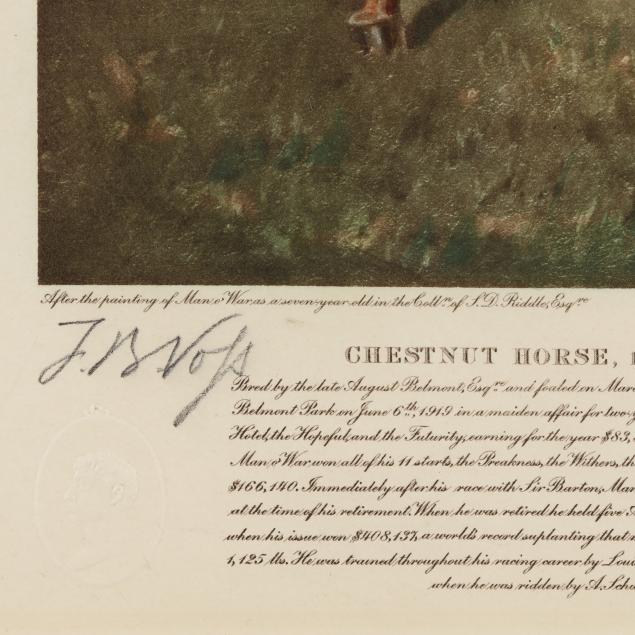 After the painting of Man o' War as a seven-year-old in the Colltn. of S. D. Riddle, Esqre
F. B. Voss
CHESTNUT HORSE, 1
Bred by the late August Belmont, Esqre and foaled on Marc
Belmont Park on June 6th, 1919 in a maiden affair for two-y
Hotel, the Hopeful, and the Futurity, earning for the year $83,
Man o' War won all of his 11 starts, the Preakness, the Withers, th
$166,140. Immediately after his race with Sir Barton, Man
at the time of his retirement. When he was retired he held five
when his issue won $408,137, a world's record suplanting that
1,125 lbs. He was trained throughout his racing career by Loui
when he was ridden by A. Schu